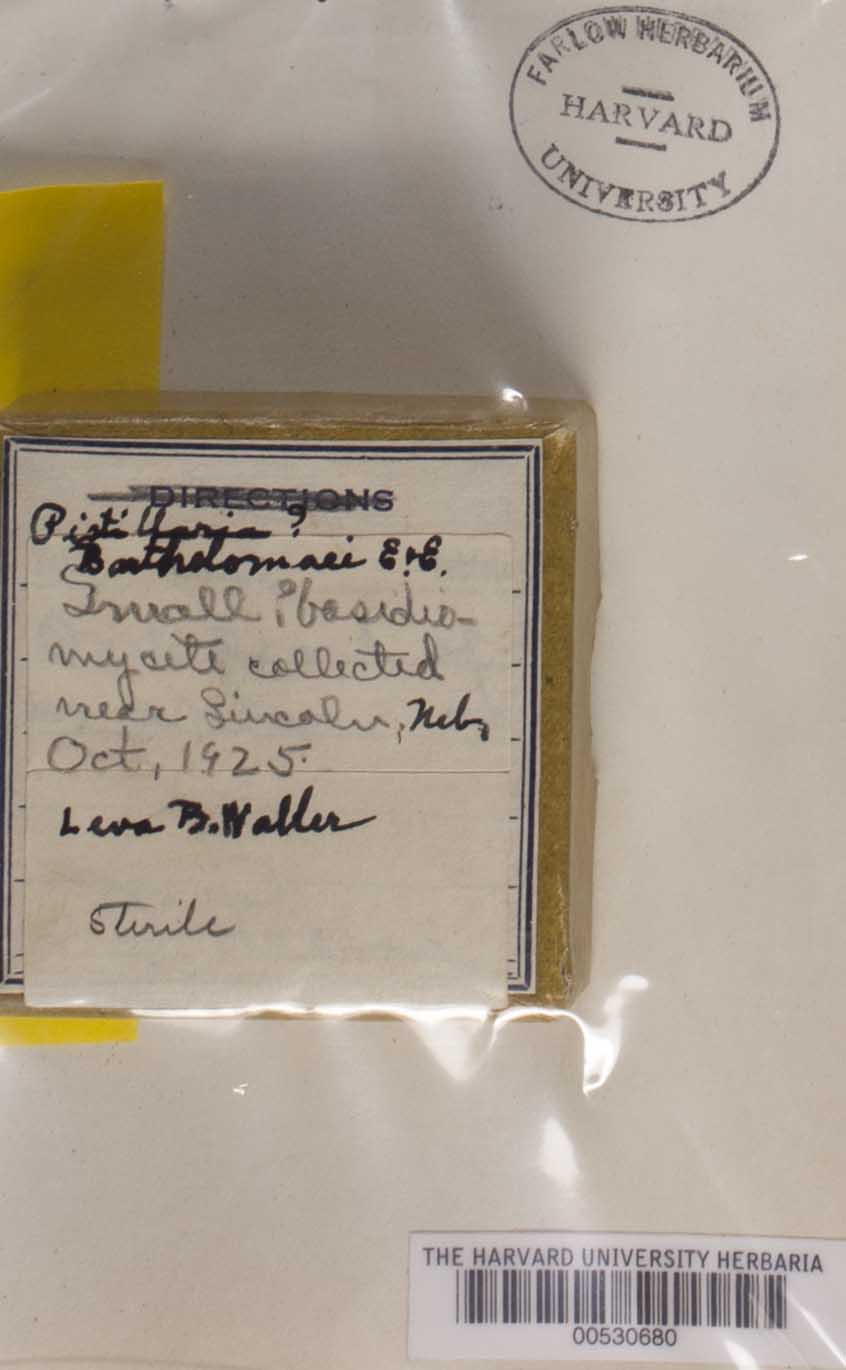 FARLOW HERBARIUM
HARVARD
UNIVERSITY
DIRECTIONS
Pistillaria ?
Bartholomaei E. & E.
Small, ? basidio-
mycete collected
near Lincoln, Neb,
Oct, 1925.
Leva B. Walker
Sterile
THE HARVARD UNIVERSITY HERBARIA
00530680